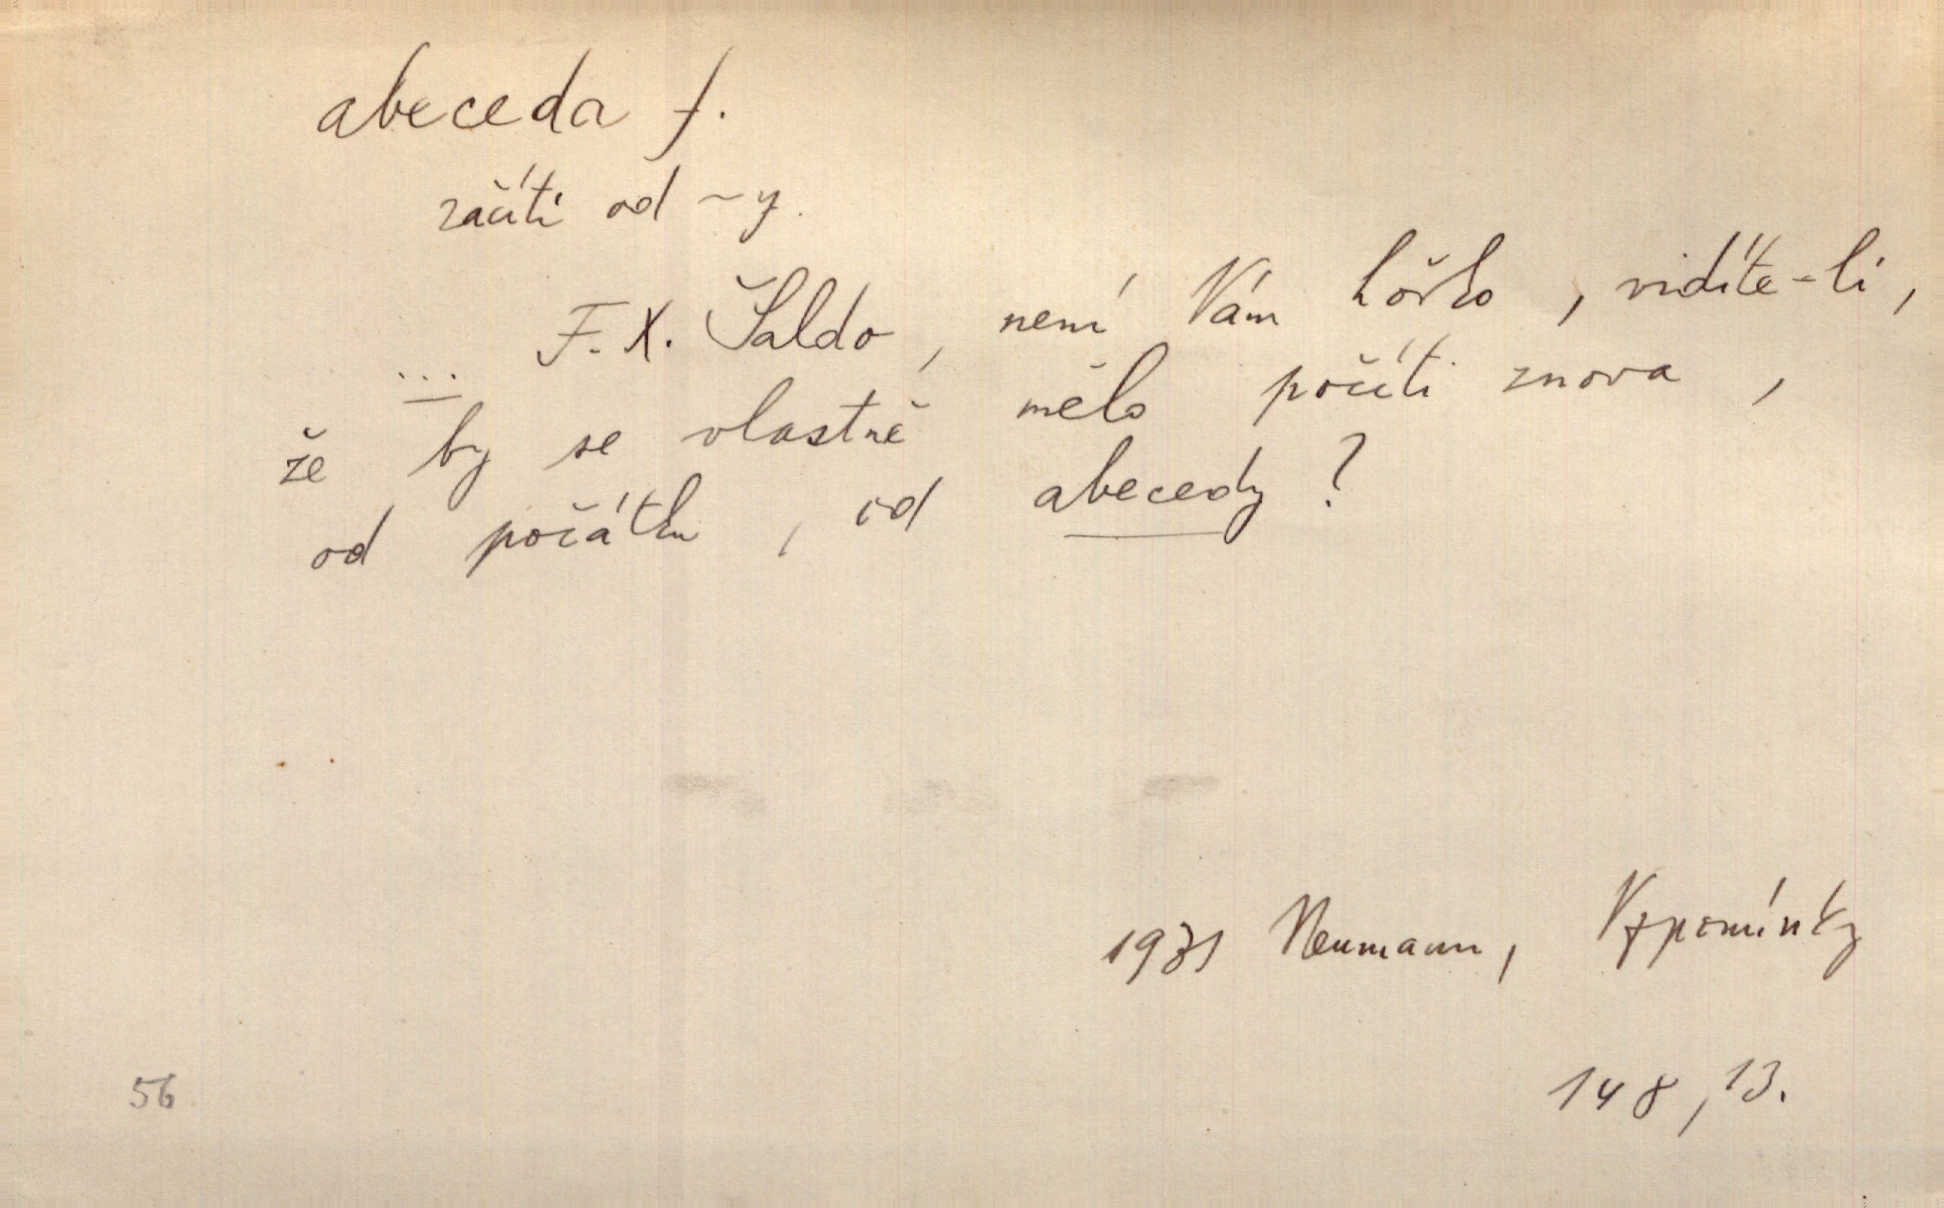 abeceda f.
začíti od ~y.
... F. X. Šaldo, není Vám hořko, vidíte-li,
že by se vlastně mělo počíti znova,
od počátku, od abecedy?
1931 Neumann, Vzpomínky
148,13.
56